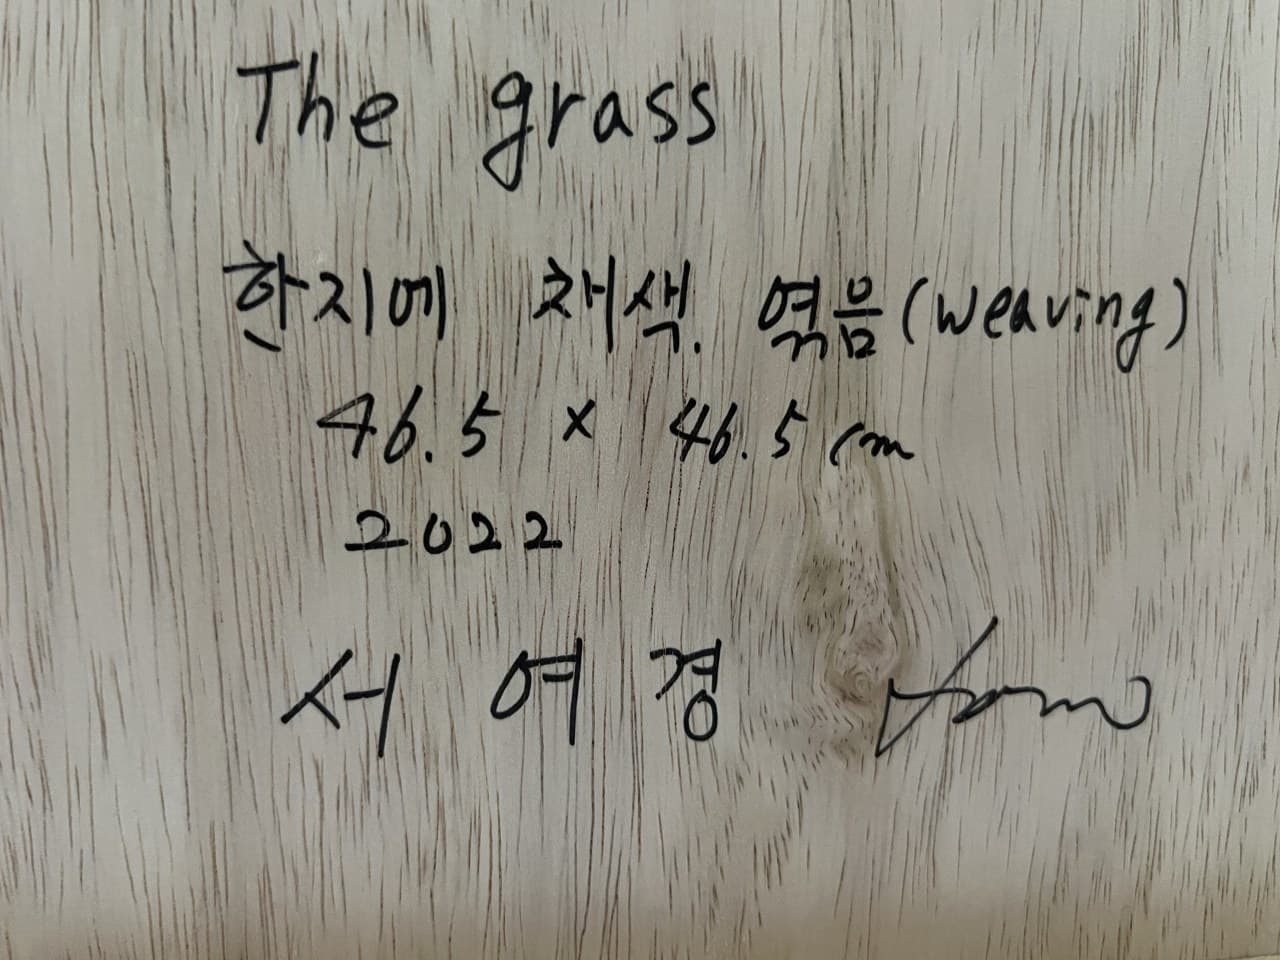 The grass
한지에 채색. 엮음 (weaving)
46.5 x 46.5 cm
2022
서 여 경